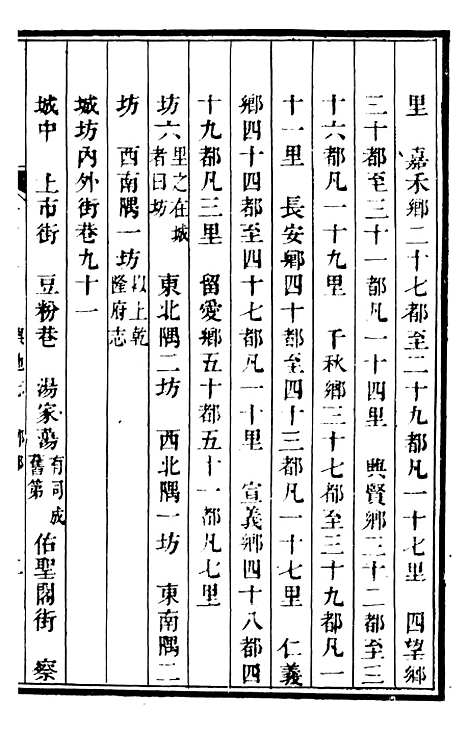 里　嘉禾鄉二十七都至二十九都凡一十七里　四望鄉
三十都至三十一都凡一十四里　興賢鄉三十二都至三
十六都凡一十九里　千秋鄉三十七都至三十九都凡一
十一里　長安鄉四十都至四十三都凡一十七里　仁義
鄉四十四都至四十七都凡一十里　宣義鄉四十八都四
十九都凡三里　留愛鄉五十都五十一都凡七里
坊六里之在城者曰坊　東北隅二坊　西北隅一坊　東南隅二
坊　西南隅一坊以上乾隆府志
城坊內外街巷九十一
城中　上市街　豆粉巷　湯家蕩有司成舊第　佑聖閣街　察